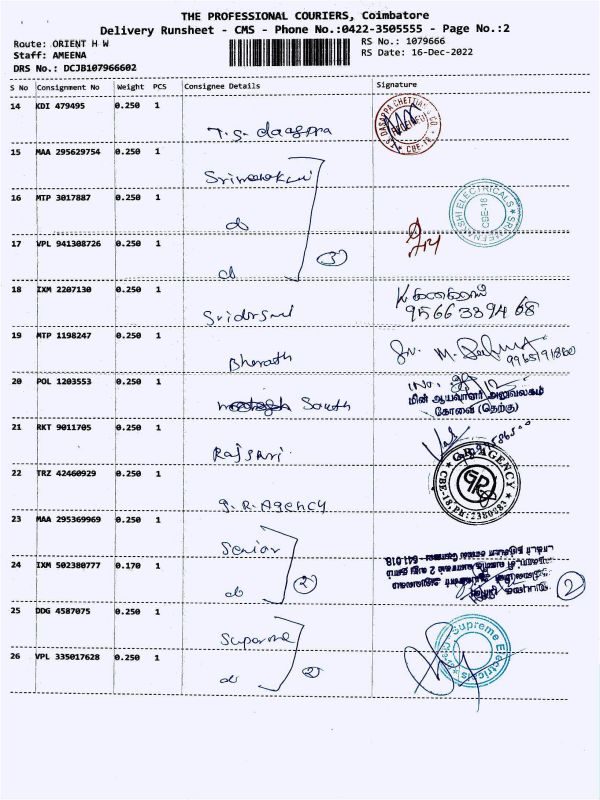 THE PROFESSIONAL COURIERS, Coimbatore
Delivery Runsheet - CMS - Phone No.:0422-3505555 - Page No.:2
Route: ORIENT H W
Staff: AMEENA
DRS No.: DCJB107966602
RS No.: 1079666
RS Date: 16-Dec-2022
S No Consignment No Weight PCS Consignee Details Signature
14 KDI 479495 0.250 1
T.S. daappa
15 MAA 295629754 0.250 1
16 MTP 3017887 0.250 1
do
SRI MEENAKSHI ELECTRICALS
CBE-18
17 VPL 941308726 0.250 1
do
3
18 IXM 2207130 0.250 1
95663 39468
19 MTP 1198247 0.250 1
Bharath
20 POL 1203553 0.250 1
South
மின் ஆய்வாளர் அலுவலகம்
கோவை (தெற்கு)
21 RKT 9011705 0.250 1
Rajsari
22 TRZ 42460929 0.250 1
G.R. Agency
G.R. AGENCY
GR
CBE-18, PH: 2380883
23 MAA 295369969 0.250 1
Senior
24 IXM 502380777 0.170 1
do
2
641 018
2
25 DDG 4587075 0.250 1
Supreme
Supreme Electricals
26 VPL 335017628 0.250 1
do
2